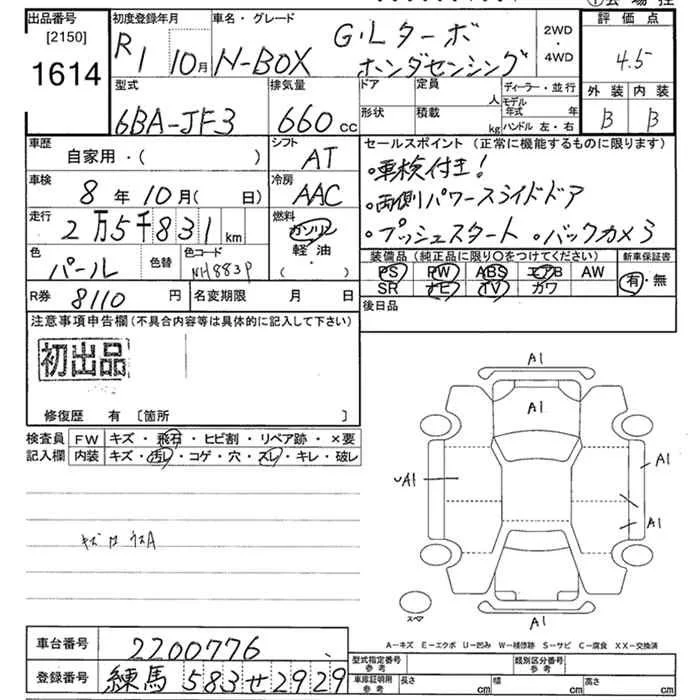 出品番号
[2150]
1614
初度登録年月
R1 10月
車名・グレード
N-BOX G・Lターボ
ホンダセンシング
2WD
・
4WD
評価点
4.5
外装 内装
B B
型式
6BA-JF3
排気量
660 cc
ドア 定員 人
形状 積載 kg
ディーラー・並行
モデル年式 年
ハンドル 左・右
車歴
自家用・( )
シフト
AT
セールスポイント(正常に機能するものに限ります)
・車検付き!
・両側パワースライドドア
・プッシュスタート ・バックカメラ
車検
8年10月( 日)
冷房
AAC
走行
2万5千831km
燃料
ガソリン
軽油
・( )
色
パール
色替
色コード
NH883P
装備品(純正品に限り〇をつけてください)
新車保証書
PS PW ABS エアB AW
SR ナビ TV カワ
有・無
R券 8110円
名変期限 月 日
後日品
注意事項申告欄(不具合内容等は具体的に記入して下さい)
初出品
修復歴 有 〔箇所 〕
検査員 FW キズ・飛石・ヒビ割・リペア跡・×要
記入欄 内装 キズ・汚レ・コゲ・穴・スレ・キレ・破レ
A1
A1
A1
A1
A1
A1
スペア
A-キズ E-エクボ U-凹み W-補修跡 S-サビ C-腐食 XX-交換済
車台番号 2200776
登録番号 練馬 583 せ 2929
型式指定番号
参考
類別区分番号
参考
車庫証明用
参考
長さ cm 幅 cm 高さ cm